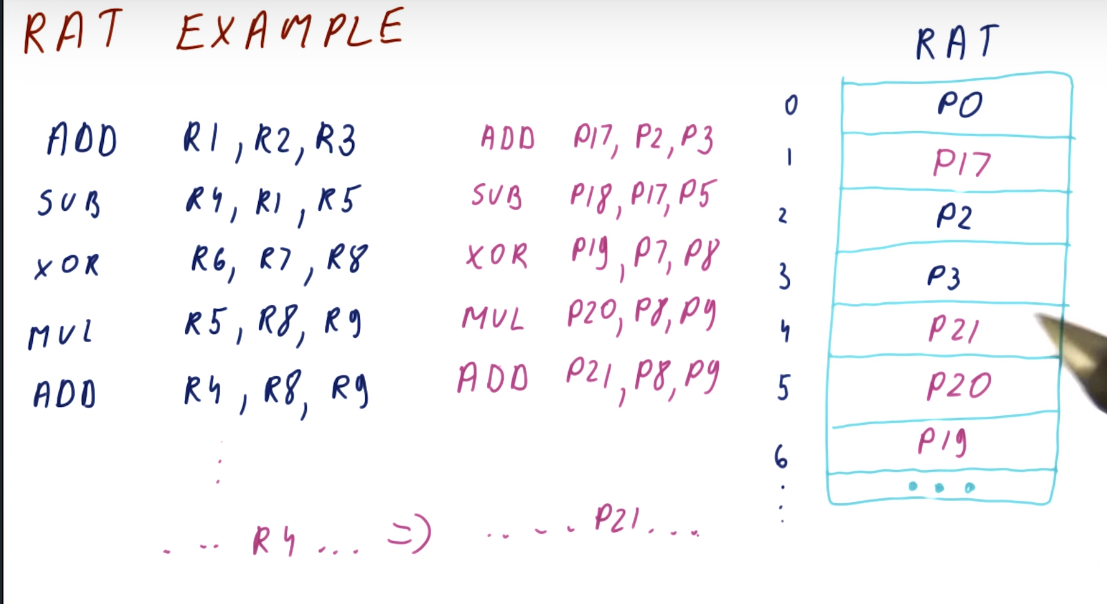 RAT EXAMPLE
ADD R1, R2, R3
SUB R4, R1, R5
XOR R6, R7, R8
MUL R5, R8, R9
ADD R4, R8, R9
⋮
ADD P17, P2, P3
SUB P18, P17, P5
XOR P19, P7, P8
MUL P20, P8, P9
ADD P21, P8, P9
... R4 ... => .... P21...
RAT
0 P0
1 P17
2 P2
3 P3
4 P21
5 P20
6 P19
⋮ •••